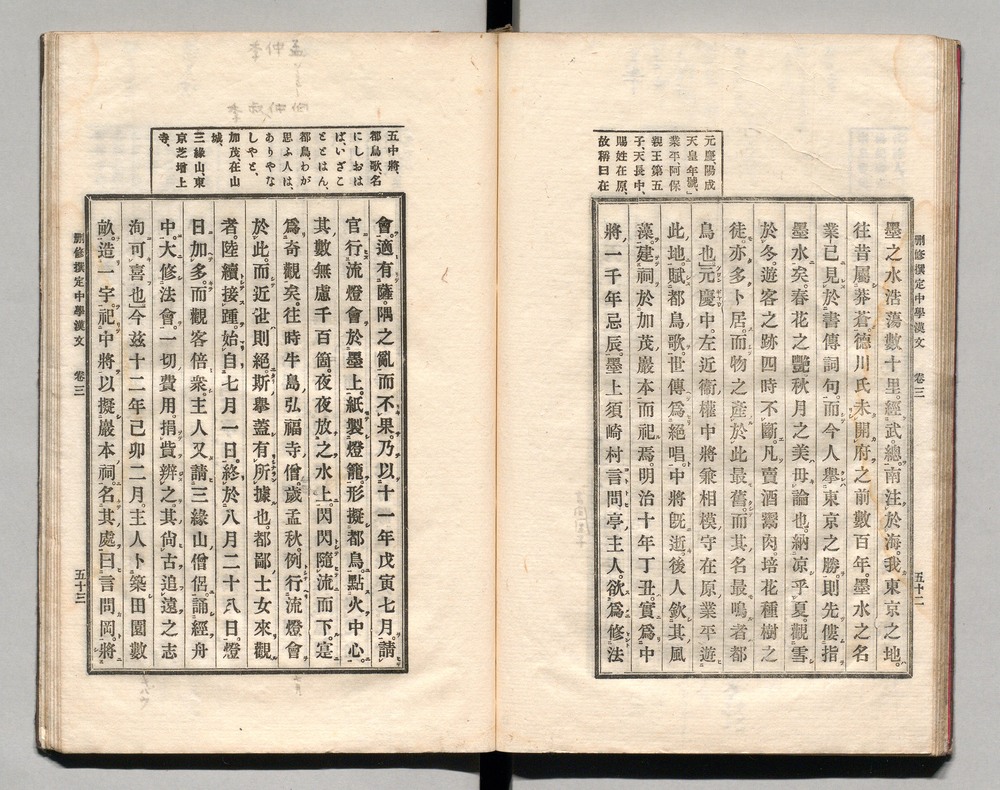 元慶、陽成
天皇年號、
業平、阿保
親王第五
子、天長中、
賜姓在原、
故稱曰在
墨之水浩蕩數十里。經武總南注於海。我東京之地。
往昔屬莽蒼。德川氏未開府之前數百年。墨水之名
業已見於書傳詞句。而今人擧東京之勝。則先僂指
墨水矣。春花之艷秋月之美毋論也。納凉乎夏。觀雪
於冬。遊客之跡四時不斷。凡賣酒鬻肉。培花種樹之
徒亦多卜居。而物之產於此最舊。而其名最鳴者都
鳥也。元慶中。左近衞權中將兼相模守在原業平遊
此地。賦都鳥歌。世傳爲絕唱。中將旣逝。後人欽其風
藻。建祠於加茂巖本而祀焉。明治十年丁丑。實爲中
將一千年忌辰。墨上須崎村言問亭主人。欲爲修法
刪修撰定中學漢文 卷三 五十二
五中將、
都鳥歌、名
にしおは
ば、いざこ
ととはん、
都鳥、わが
思ふ人は、
ありやな
しやと、
加茂在山
城、
三緣山東
京芝增上
寺、
會。適有薩隅之亂而不果。乃以十一年戊寅七月。請
官行流燈會於墨上。紙製燈籠。形擬都鳥。點火中心。
其數無慮千百箇。夜夜放之水上。閃閃隨流而下。寔
爲奇觀矣。往時牛島弘福寺僧。歲孟秋。例行流燈會
於此。而近世則絕。斯擧蓋有所據也。都鄙士女來觀
者。陸續接踵。始自七月一日。終於八月二十八日。燈
日加多。而觀客倍衆。主人又請三緣山僧侶。誦經舟
中。大修法會。一切費用。捐貲辨之。其尙古追遠之志
洵可喜也。今茲十二年己卯二月。主人卜築田園數
畝。造一宇。祀中將以擬巖本祠。名其處曰言問岡。將
刪修撰定中學漢文 卷三 五十三
李仲孟